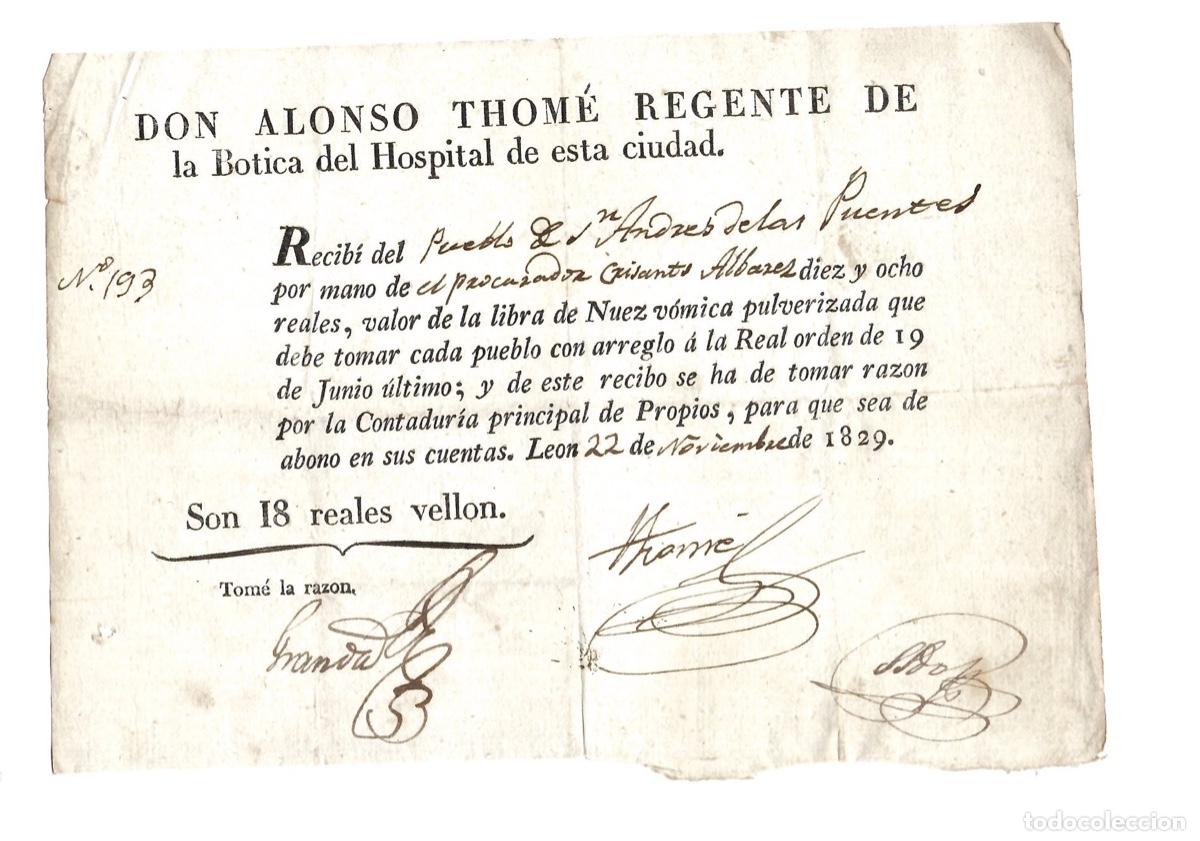 DON ALONSO THOMÉ REGENTE DE
la Botica del Hospital de esta ciudad.
Nº. 193
Recibí del Pueblo de Sn Andres de las Puentes
por mano de el procurador Crisanto Albarez diez y ocho
reales, valor de la libra de Nuez vómica pulverizada que
debe tomar cada pueblo con arreglo á la Real orden de 19
de Junio último; y de este recibo se ha de tomar razon
por la Contaduría principal de Propios, para que sea de
abono en sus cuentas. Leon 22 de Noviembre de 1829.
Son 18 reales vellon.
Thomé
Tomé la razon.
Granda
todocoleccion